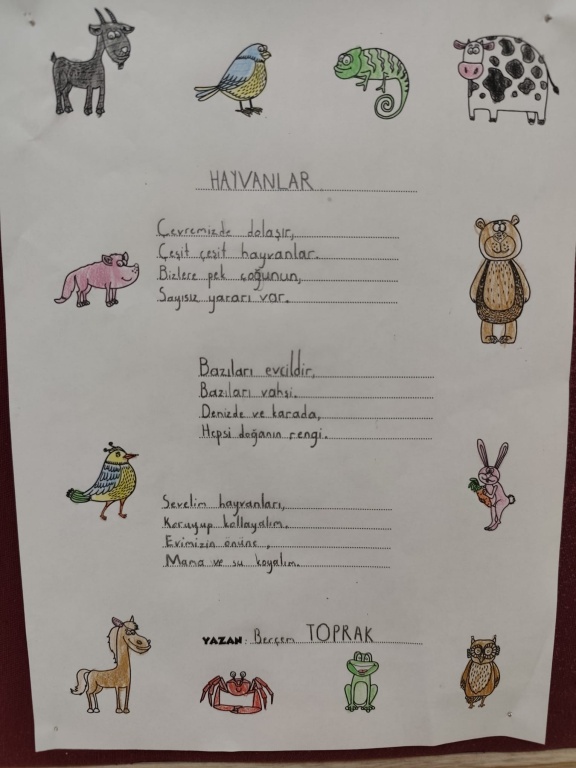 HAYVANLAR
Çevremizde dolaşır,
Çeşit çeşit hayvanlar.
Bizlere pek çoğunun,
Sayısız yararı var.
Bazıları evcildir,
Bazıları vahşi.
Denizde ve karada,
Hepsi doğanın rengi.
Sevelim hayvanları,
Koruyup kollayalım.
Evimizin önüne,
Mama ve su koyalım.
YAZAN: Berçem TOPRAK